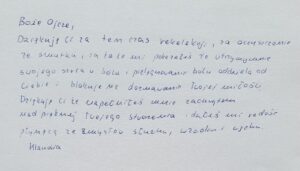 Boże Ojcze,
Dziękuję Ci za ten czas rekolekcji, za oczyszczenie
ze smutku, za to że mi pokazałeś że utrzymywanie
swojego serca w bólu i pielęgnowanie bólu oddziela od
Ciebie i blokuje na doznawanie Twojej miłości.
Dziękuję Ci że napełniłeś mnie zachwytem
nad pięknem Twojego stworzenia - dałeś mi radość
płynącą ze zmysłów słuchu, wzroku i węchu.